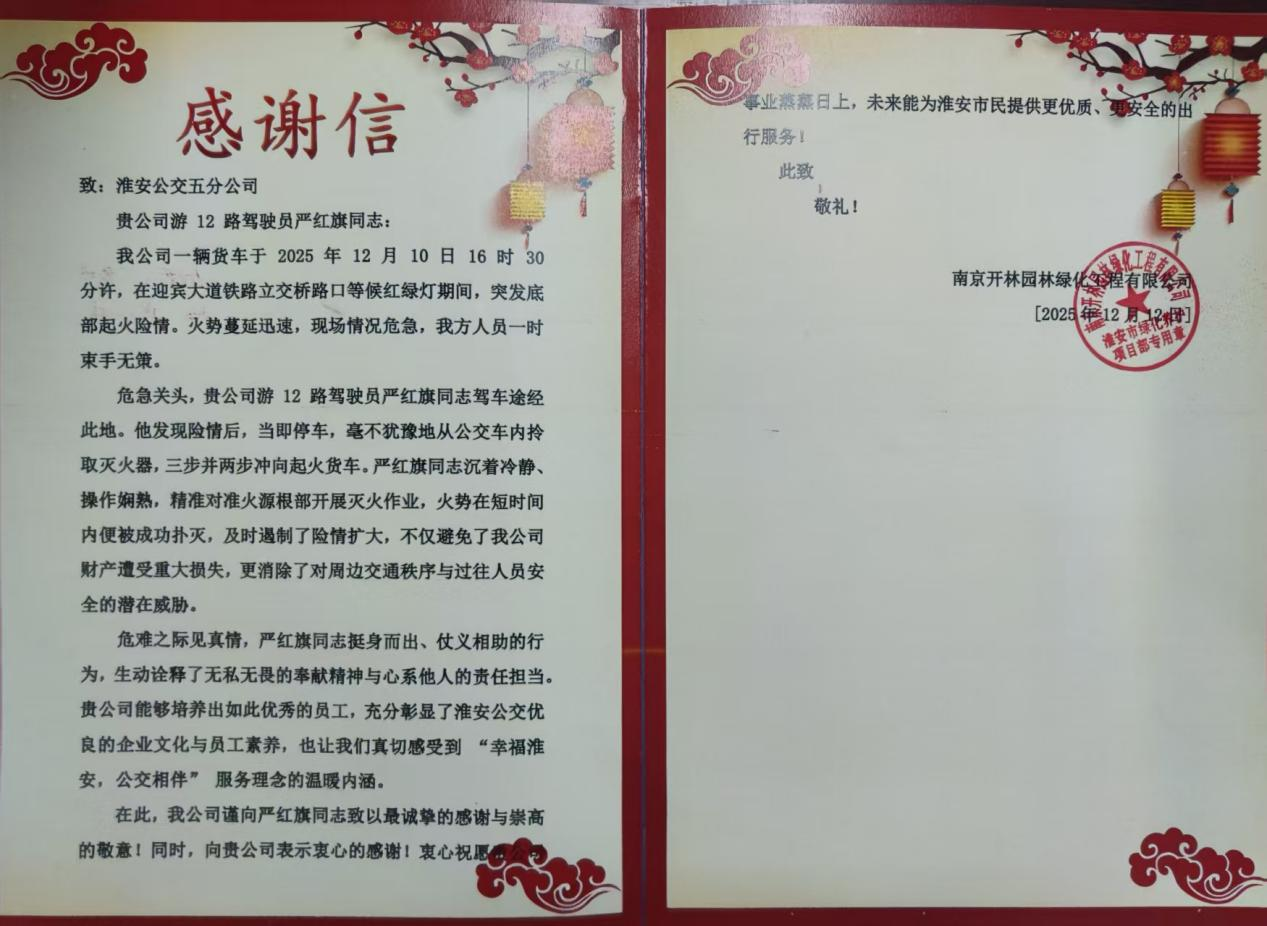 感谢信
致：淮安公交五分公司
贵公司游 12 路驾驶员严红旗同志：
我公司一辆货车于 2025 年 12 月 10 日 16 时 30
分许，在迎宾大道铁路立交桥路口等候红绿灯期间，突发底
部起火险情。火势蔓延迅速，现场情况危急，我方人员一时
束手无策。
危急关头，贵公司游 12 路驾驶员严红旗同志驾车途经
此地。他发现险情后，当即停车，毫不犹豫地从公交车内拎
取灭火器，三步并两步冲向起火货车。严红旗同志沉着冷静、
操作娴熟，精准对准火源根部开展灭火作业，火势在短时间
内便被成功扑灭，及时遏制了险情扩大，不仅避免了我公司
财产遭受重大损失，更消除了对周边交通秩序与过往人员安
全的潜在威胁。
危难之际见真情，严红旗同志挺身而出、仗义相助的行
为，生动诠释了无私无畏的奉献精神与心系他人的责任担当。
贵公司能够培养出如此优秀的员工，充分彰显了淮安公交优
良的企业文化与员工素养，也让我们真切感受到 “幸福淮
安，公交相伴” 服务理念的温暖内涵。
在此，我公司谨向严红旗同志致以最诚挚的感谢与崇高
的敬意！同时，向贵公司表示衷心的感谢！衷心祝愿贵公司
事业蒸蒸日上，未来能为淮安市民提供更优质、更安全的出
行服务！
此致
敬礼！
南京开林园林绿化工程有限公司
[2025 年 12 月 12 日]
南京开林园林绿化工程有限公司
淮安市绿化养
项目部专用章